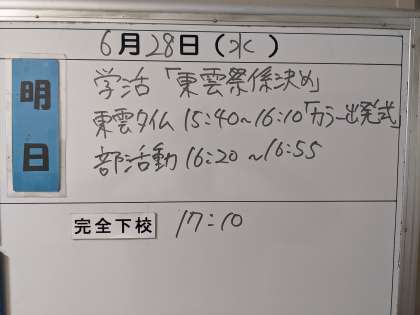 6月28日(水)
明日
学活「東雲祭係決め」
東雲タイム 15:40~16:10「カラー出発式」
部活動 16:20~16:55
完全下校 17:10